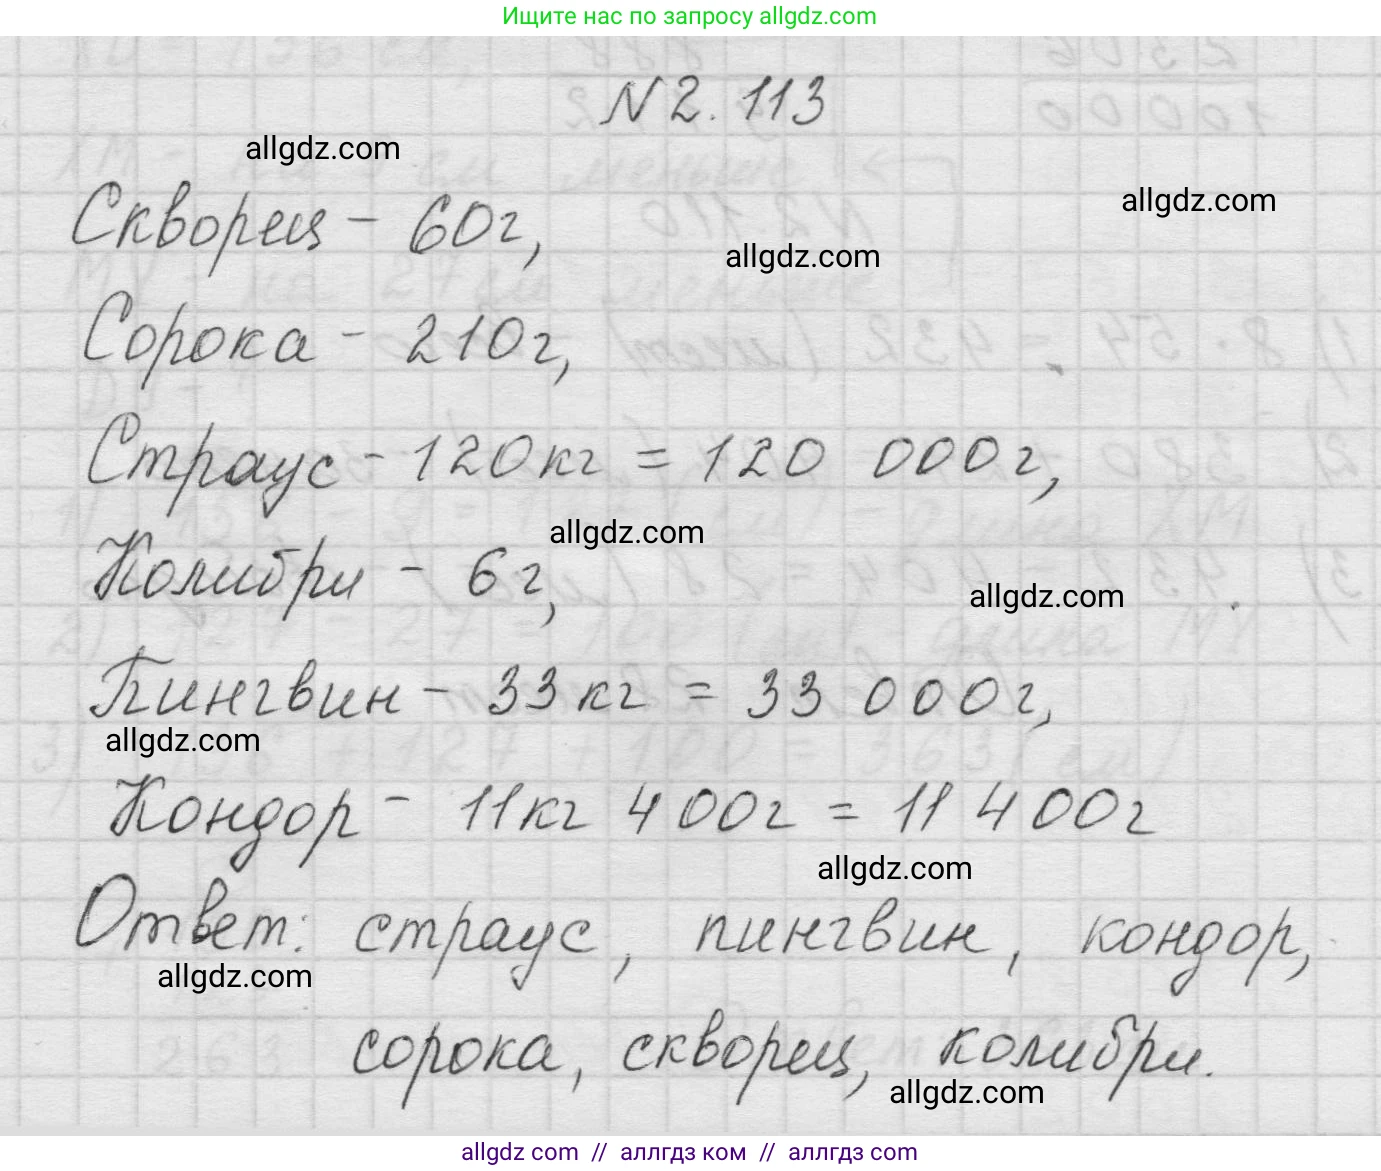 Ищите нас по запросу allgdz.com
N 2.113
allgdz.com
allgdz.com
Скворец - 60г,
allgdz.com
Сорока - 210г,
Страус - 120кг = 120 000г,
allgdz.com
Колибри - 6г,
allgdz.com
Пингвин - 33кг = 33 000г,
allgdz.com
Кондор - 11кг 400г = 11 400г
allgdz.com
Ответ: страус, пингвин, кондор,
allgdz.com
сорока, скворец, колибри.
allgdz.com
allgdz.com // аллгдз ком // allgdz.com